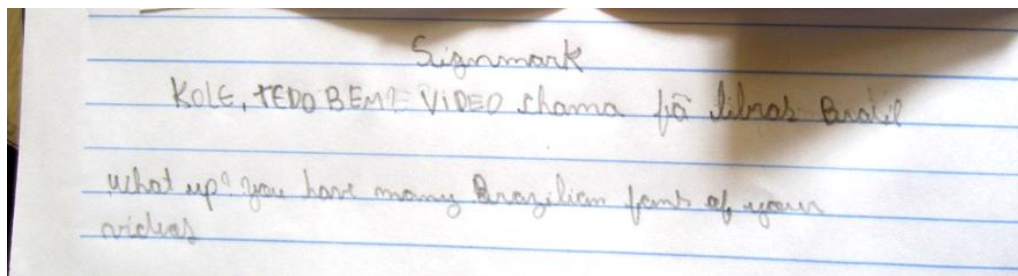 Signmark
KOLE, TEDO BEM? VIDEO chama fã libras Brasil
what up? you have many Brazilian fans of your
videos